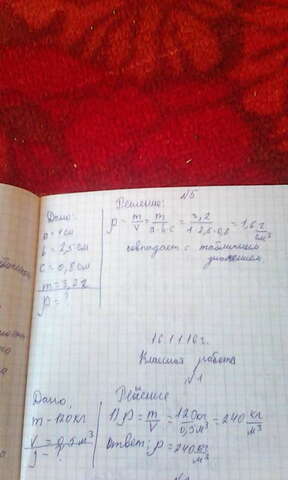 №5
Дано:
a = 1 см
b = 2,5 см
c = 0,8 см
m = 3,2 г
ρ = ?
Решение:
ρ = m/V = m/a·b·c = 3,2/1·2,5·0,8 = 1,6 г/см³
совпадает с табличным
значением.
16.11.16г.
Классная работа
№1
Дано
m - 120 кг
V = 0,5 м³
ρ - ?
Решение
1) ρ = m/V = 120кг/0,5м³ = 240 кг/м³
ответ: ρ = 240 кг/м³